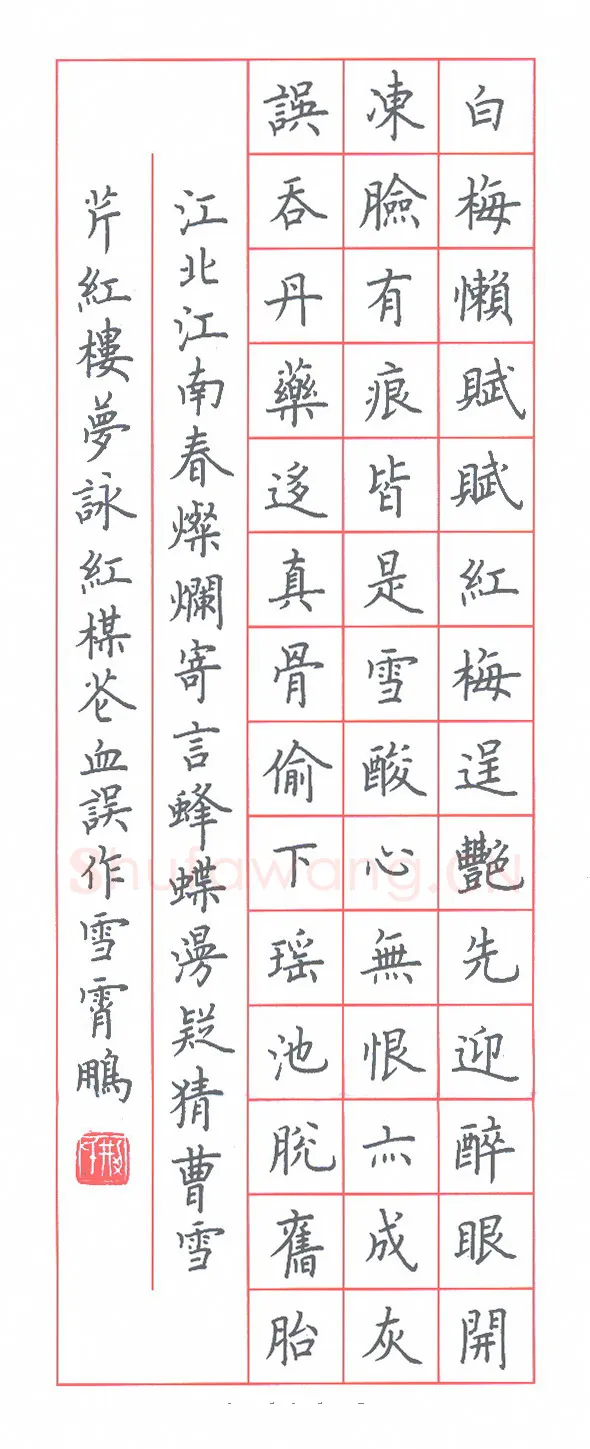 白梅懶賦賦紅梅逞艷先迎醉眼開
凍臉有痕皆是雪酸心無恨亦成灰
誤吞丹藥迻真骨偷下瑶池脫舊胎
江北江南春燦爛寄言蜂蝶漫疑猜曹雪
芹紅樓夢詠紅楳花血誤作雪霄鵬
Shufawang.CN